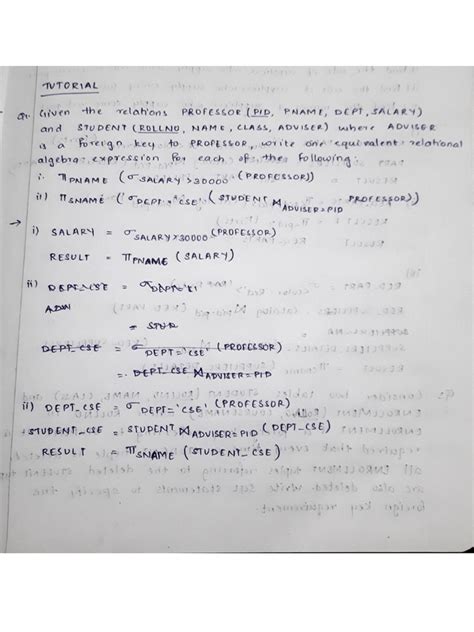 TUTORIAL
Q1. Given the relations PROFESSOR (PID, PNAME, DEPT, SALARY)
and STUDENT (ROLLNO, NAME, CLASS, ADVISER) where ADVISER
is a foreign key to PROFESSOR, write one equivalent relational
algebra expression for each of the following:
i. πPNAME (σSALARY>30000 (PROFESSOR))
ii) πSNAME (σDEPT='CSE' (STUDENT ⋈ADVISER=PID PROFESSOR))
→ i) SALARY = σSALARY>30000 (PROFESSOR)
RESULT = πPNAME (SALARY)
ii) DEPT_CSE = σDEPT=
DEPT_CSE = σDEPT='CSE' (PROFESSOR)
= DEPT_CSE ⋈ADVISER=PID
ii) DEPT_CSE = σDEPT='CSE' (PROFESSOR)
STUDENT_CSE = STUDENT ⋈ADVISER=PID (DEPT_CSE)
RESULT = πSNAME (STUDENT_CSE)